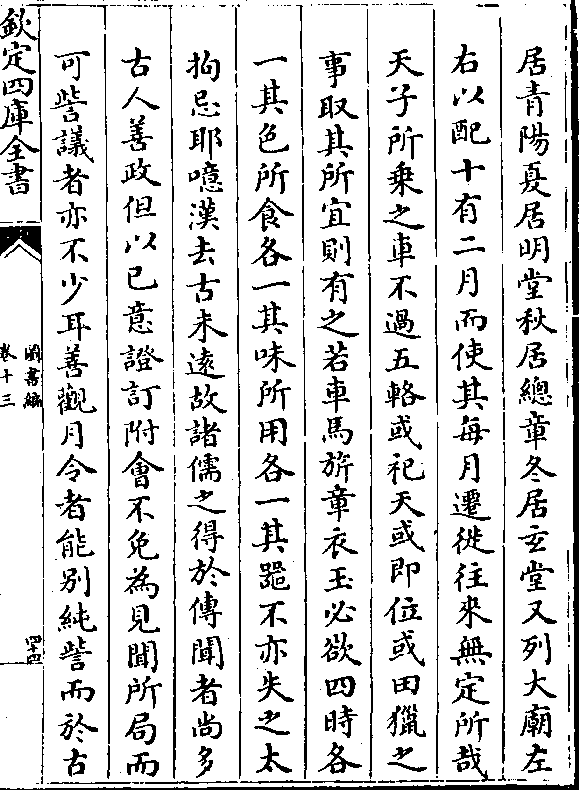 居青陽夏居明堂秋居總章冬居玄堂又列大廟左
右以配十有二月而使其每月遷徙往來無定所哉
天子所乗之車不過五輅或祀天或即位或田獵之
事取其所宜則有之若車馬旂章衣玉必欲四時各
一其色所食各一其味所用各一其噐不亦失之太
拘忌耶噫漢去古未遠故諸儒之得於傳聞者尚多
古人善政但以已意證訂附會不免為見聞所局而
可訾議者亦不少耳善觀月令者能别純訾而於古
欽定四庫全書
圖書編
卷十三
四十四